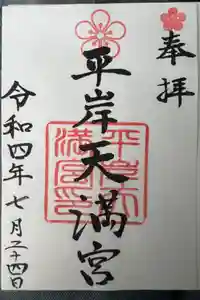 奉拝
平岸天満宮
平岸天満宮印
令和四年七月二十四日